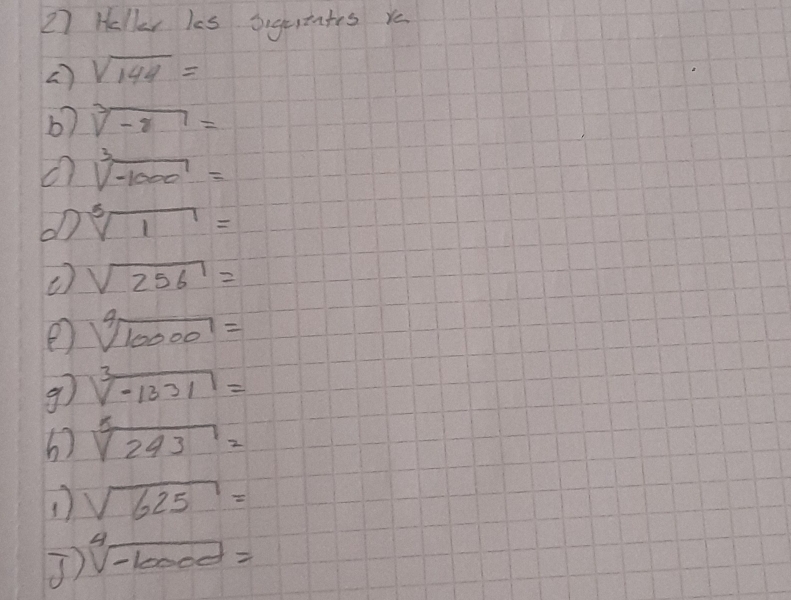 2) Hallar las siguientes
a) √144 =
b) ∛-8 =
c) ∛-1000 =
d) ⁵√1 =
e) √256 =
f) ⁴√10000 =
g) ∛-1331 =
h) ⁵√243 =
i) √625 =
J) ⁴√-10000 =